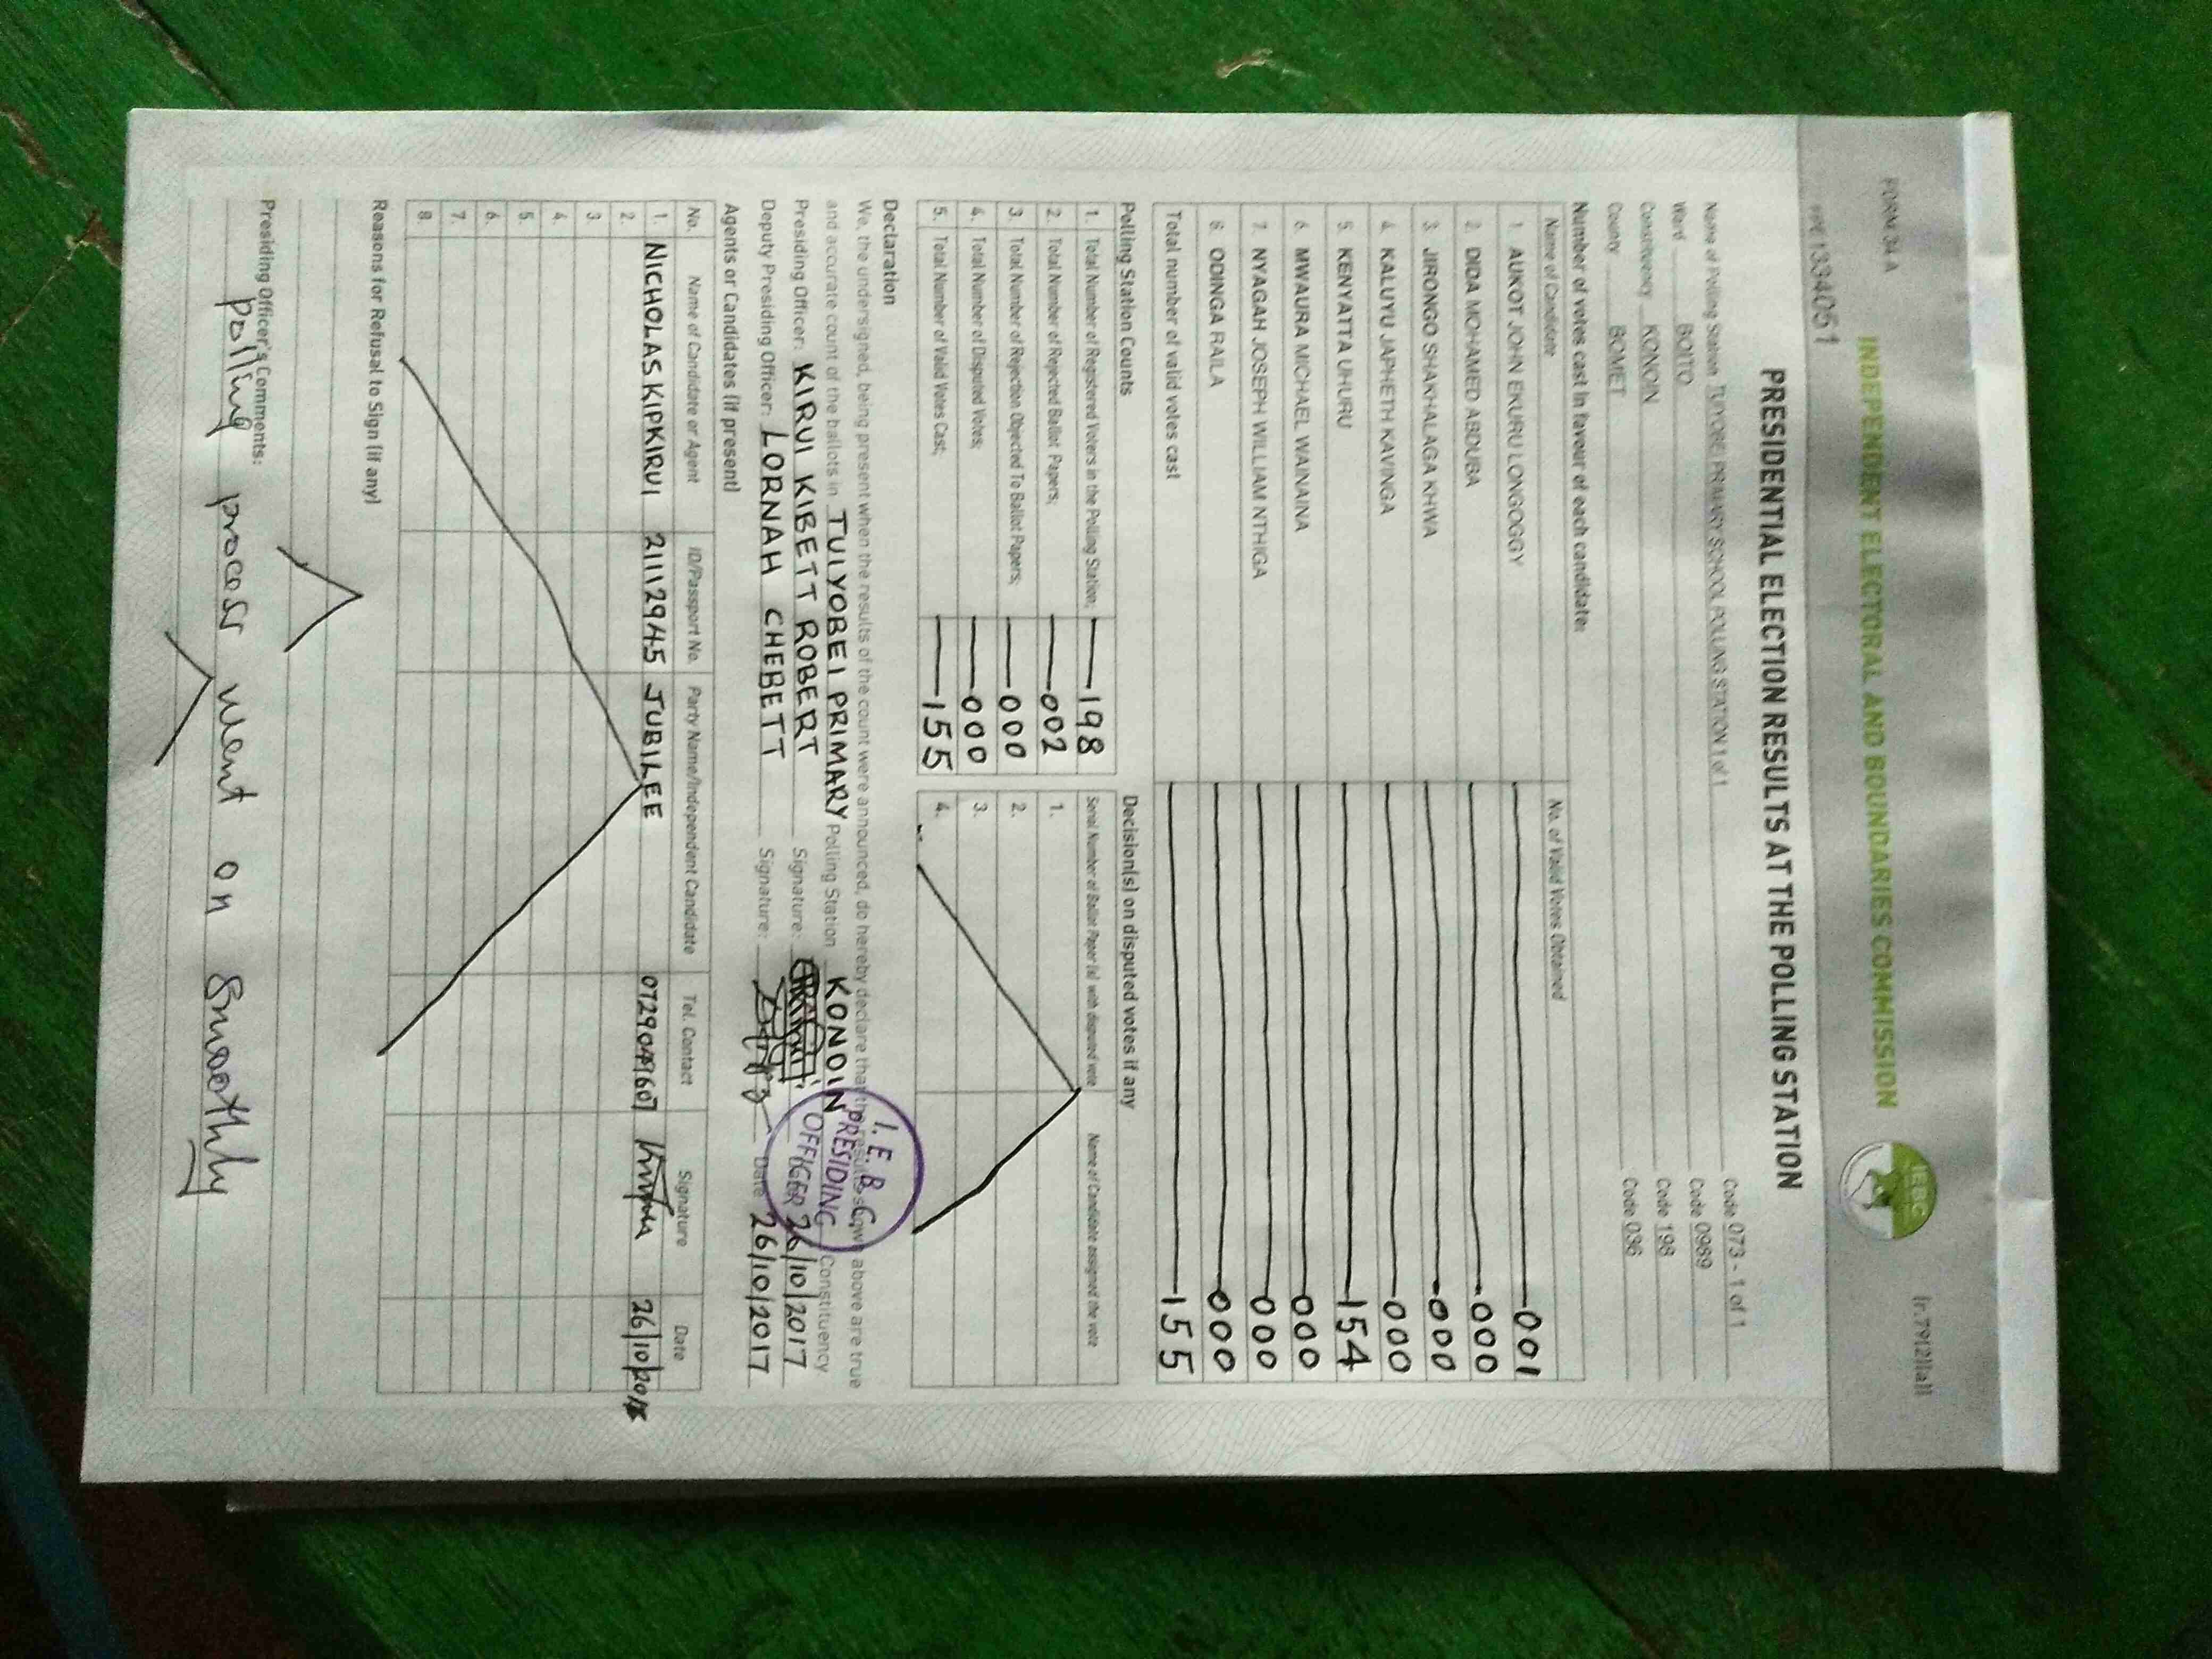 FORM 34 A
INDEPENDENT ELECTORAL AND BOUNDARIES COMMISSION
IEBC
(r.79(2)(a))
1334051
PRESIDENTIAL ELECTION RESULTS AT THE POLLING STATION
Name of Polling Station TUIYOBEI PRIMARY SCHOOL POLLING STATION 1 of 1 Code 073 - 1 of 1
Ward BOITO Code 0989
Constituency KONOIN Code 198
County BOMET Code 036
Number of votes cast in favour of each candidate:
Name of Candidate No. of Valid Votes Obtained
1. AUKOT JOHN EKURU LONGOGGY 001
2. DIDA MOHAMED ABDUBA 000
3. JIRONGO SHAKHALAGA KHWA 000
4. KALUYU JAPHETH KAVINGA 000
5. KENYATTA UHURU 154
6. MWAURA MICHAEL WAINAINA 000
7. NYAGAH JOSEPH WILLIAM NTHIGA 000
8. ODINGA RAILA 000
Total number of valid votes cast 155
Polling Station Counts
1. Total Number of Registered Voters in the Polling Station; 198
2. Total Number of Rejected Ballot Papers; 002
3. Total Number of Rejection Objected To Ballot Papers; 000
4. Total Number of Disputed Votes; 000
5. Total Number of Valid Votes Cast; 155
Decision(s) on disputed votes if any
Serial Number of Ballot Paper (s) with disputed vote Name of Candidate assigned the vote
1.
2.
3.
4.
Declaration
We, the undersigned, being present when the results of the count were announced, do hereby declare that the results shown above are true
and accurate count of the ballots in TUIYOBEI PRIMARY Polling Station KONOIN Constituency
Presiding Officer: KIRUI KIBETT ROBERT Signature: 26/10/2017
Deputy Presiding Officer: LORNAH CHEBETT Signature: Date 26/10/2017
I. E. B. C.
PRESIDING
OFFICER
Agents or Candidates (if present)
No. Name of Candidate or Agent ID/Passport No. Party Name/Independent Candidate Tel. Contact Signature Date
1. NICHOLAS KIPKIRUI 21112945 JUBILEE 26/10/201
2.
3.
4.
5.
6.
7.
8.
Reasons for Refusal to Sign (if any)
Presiding Officer's Comments:
polling process went on smoothly